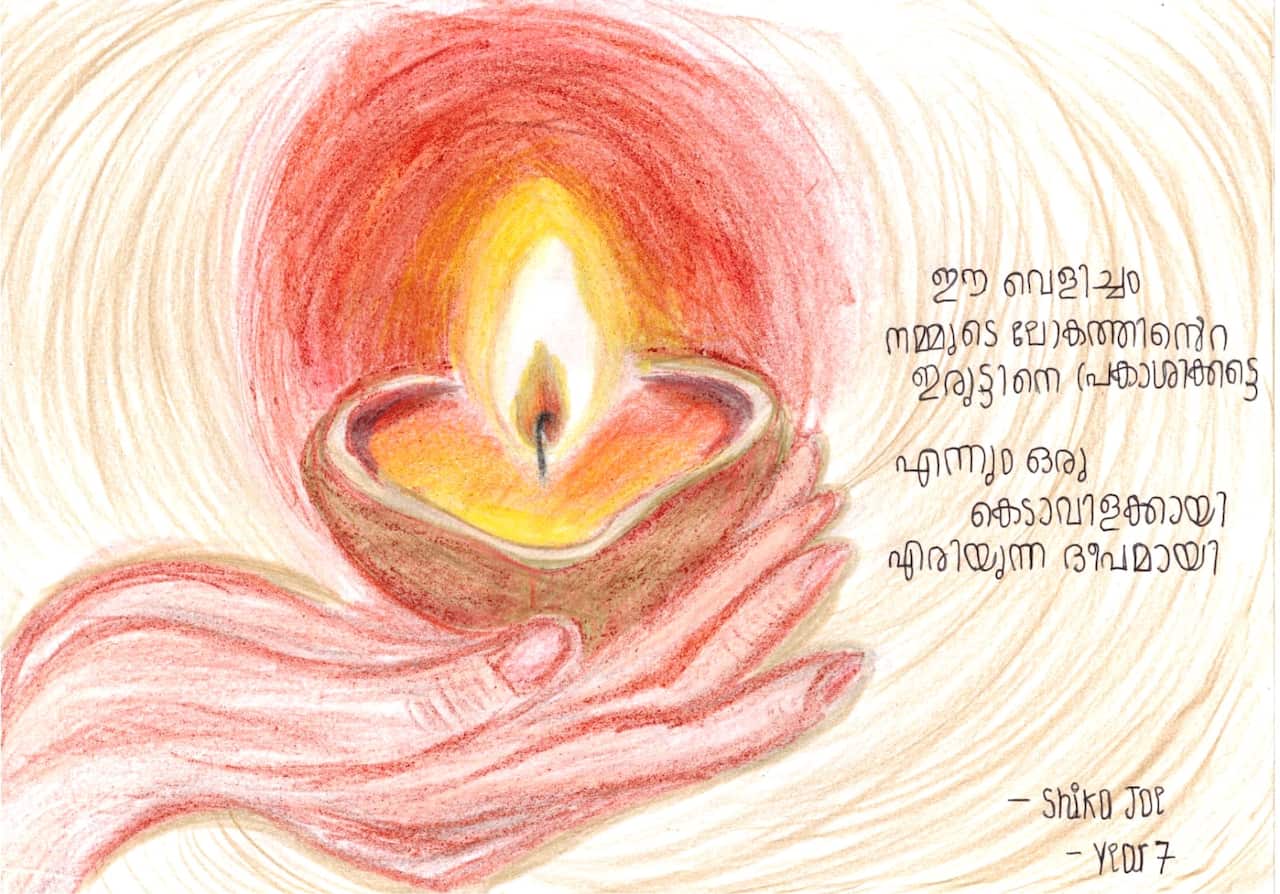 ഈ വെളിച്ചം
നമ്മുടെ ലോകത്തിൻ്റെ
ഇരുട്ടിനെ പ്രകാശിക്കട്ടെ
എന്നും ഒരു
കെടാവിളക്കായി
എരിയുന്ന ദീപമായി
- Shika Joe
- Year 7